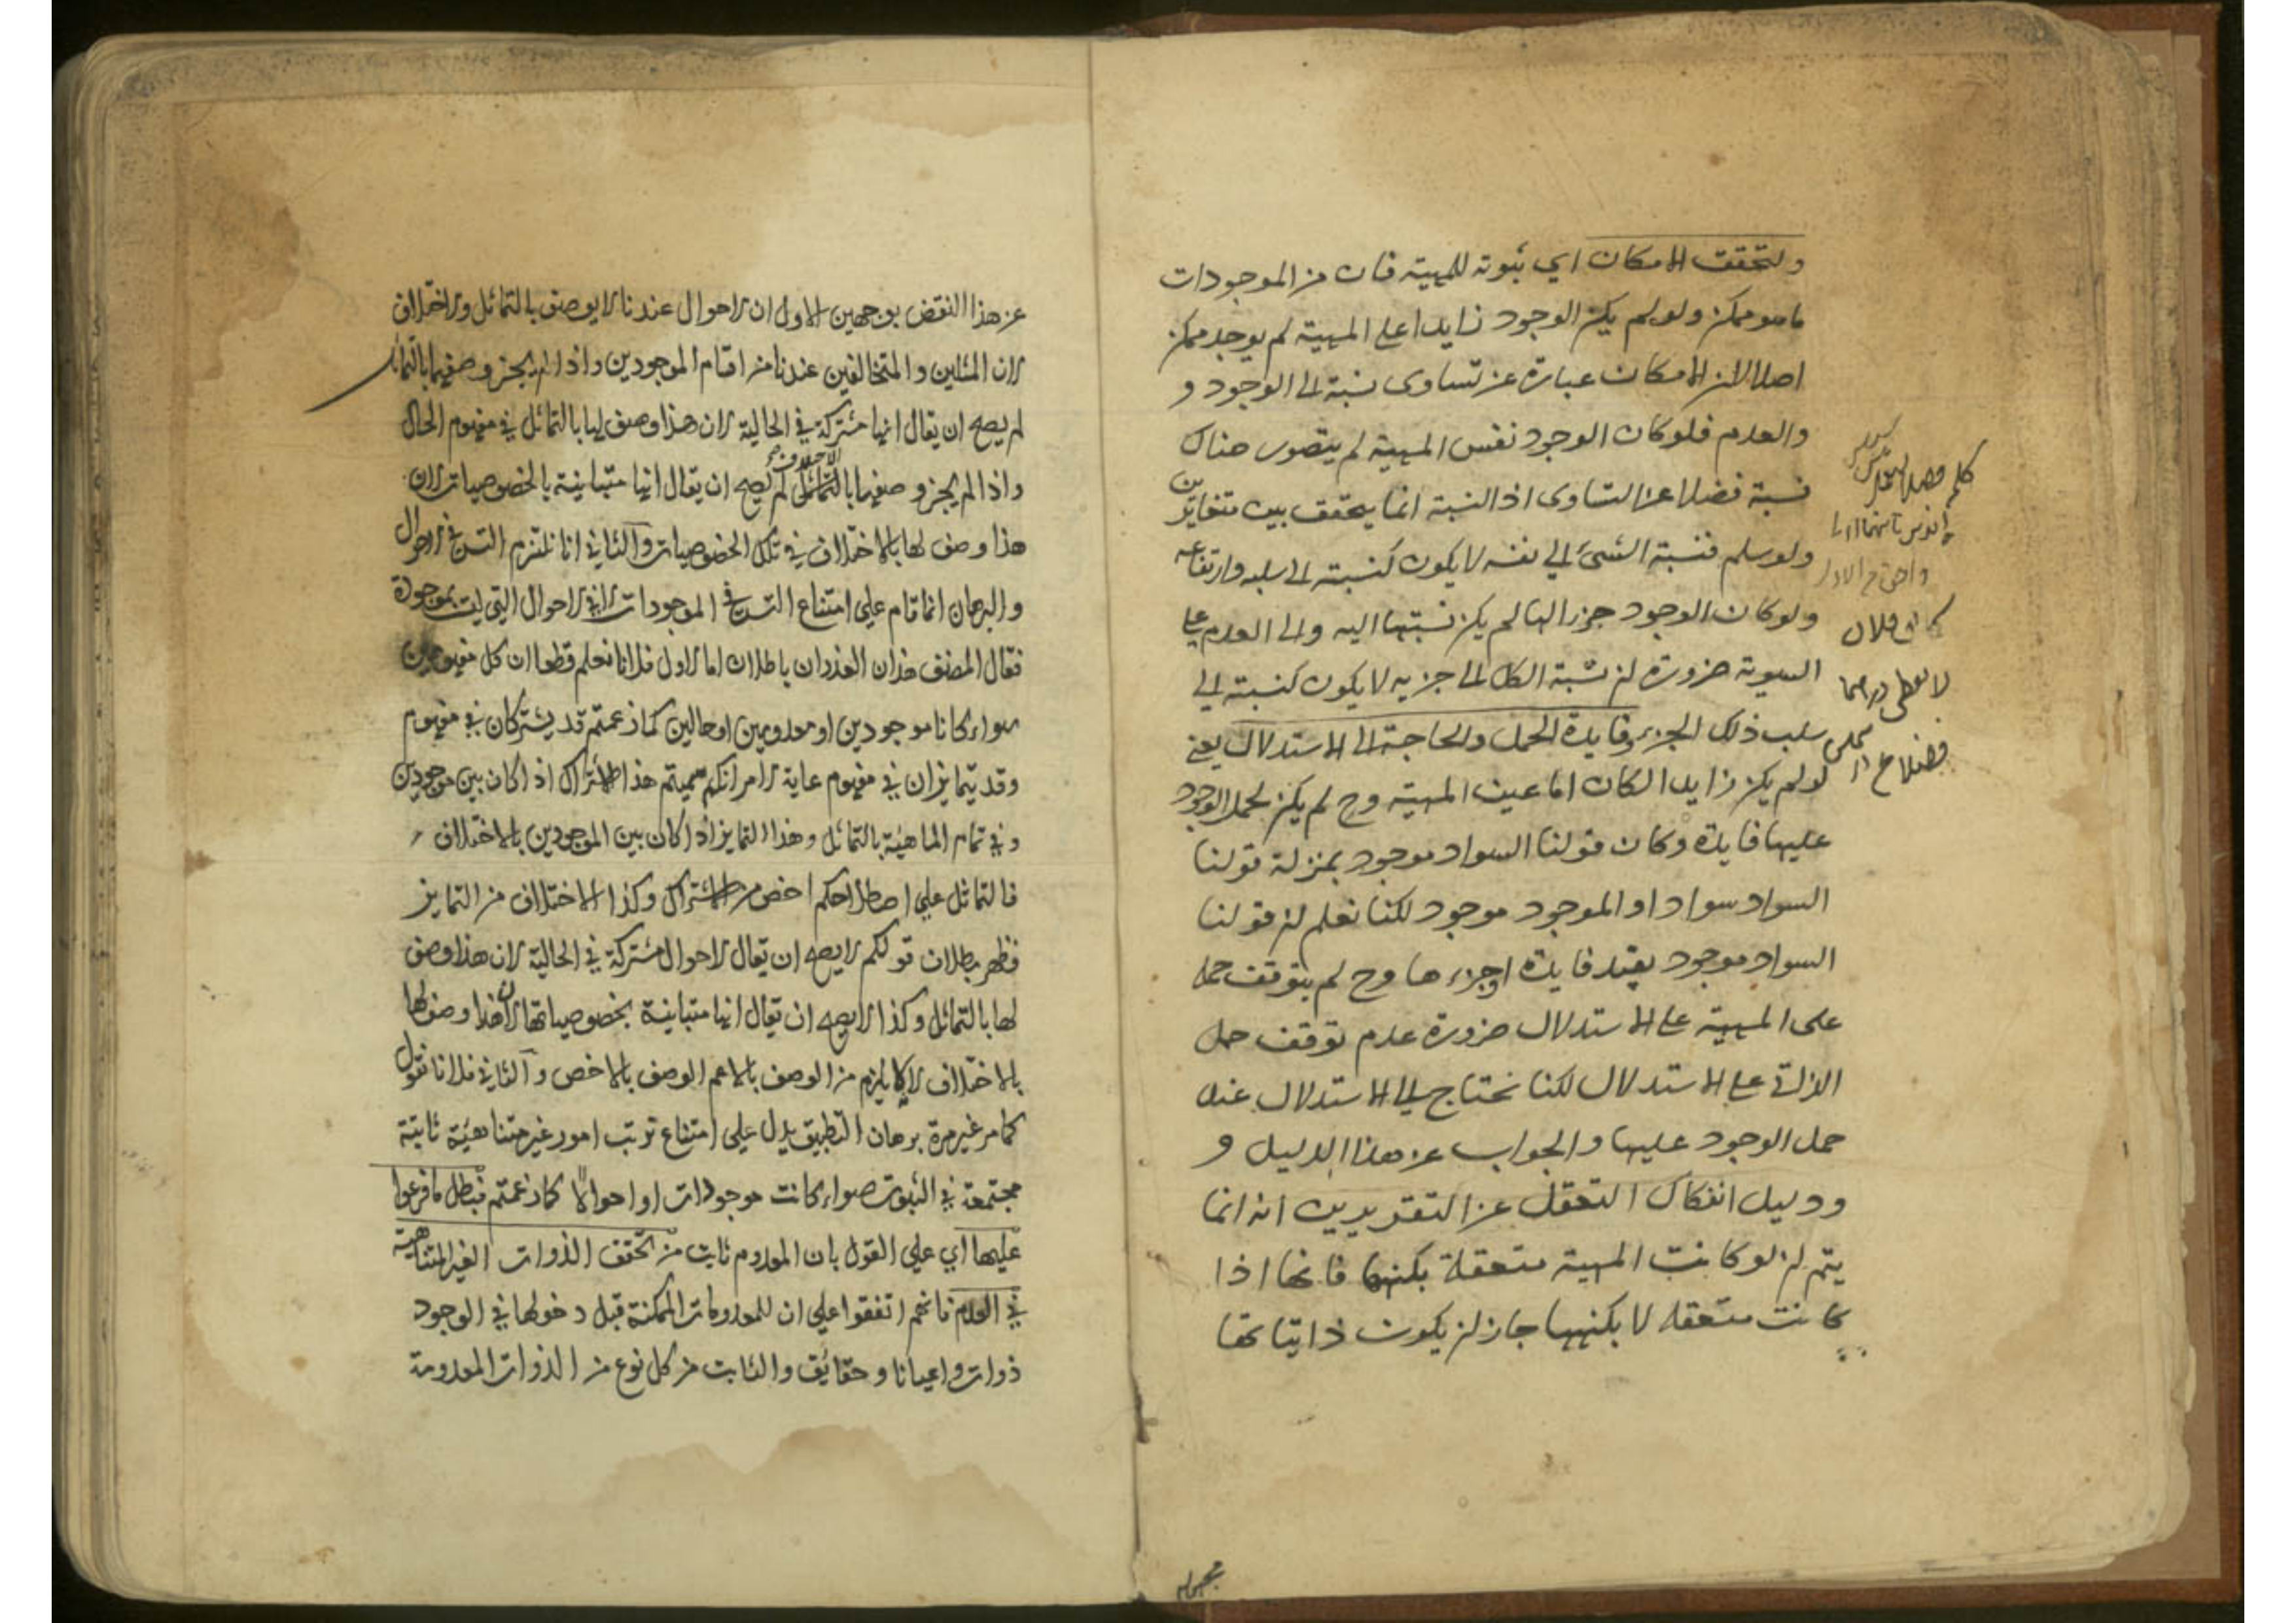 ولتحقق الامكان اي ثبوته للمهية فان من الموجودات
ما هو ممكن ولو لم يكن الوجود زايدا على المهية لم يوجد ممكن
اصلا لان الامكان عبارة عن تساوى نسبة الى الوجود و
والعدم فلو كان الوجود نفس المهية لم يتصور هناك
نسبة فضلا عن التساوى اذ النسبة انما يتحقق بين متغايرين
ولو سلم فنسبة الشئ الى نفسه لا يكون كنسبته الى سلبه وارتفاعه
ولو كان الوجود جزء الها لم يكن نسبتها اليه والى العدم على
السوية ضرورة ان نسبة الكل الى جزيه لا يكون كنسبته الى
سلب ذلك الجزء وفايدة الحمل والحاجة الى الاستدلال يعني
لو لم يكن زايدا لكان اما عين المهية وح لم يكن لحمل الوجود
عليها فايدة وكان قولنا السواد موجود بمنزلة قولنا
السواد سواد او الموجود موجود لكنا نعلم ان قولنا
السواد موجود يفيد فايدة او جزءها وح لم يتوقف حمله
على المهية على الاستدلال ضرورة عدم توقف حمل
الذاتي على الاستدلال لكنا نحتاج الى الاستدلال عند
حمل الوجود عليها والجواب عن هذا الدليل و
ودليل انفكاك التعقل عن التقديرين انه انما
يتم ان لو كانت المهية متعقلة بكنهها فانها اذا
كانت متعقله لا بكنهها جاز ان يكون ذاتيا لها
كلمة فضلا
لا يعطى درهما
عن هذا النقض بوجهين الاول ان الاحوال عندنا لا يوصف بالتماثل والاختلاف
لان المثلين والمتخالفين عندنا من اقسام الموجودين واذا لم يجز وصفها بالتماثل
لم يصح ان يقال انها مشتركة في الحالية لان هذا وصف لها بالتماثل في مفهوم الحال
واذا لم يجز وصفها بالاختلاف لم يصح ان يقال انها متباينة بالخصوصيات لان
هذا وصف لها بالاختلاف في تلك الخصوصيات والثاني انا نلتزم التس في الاحوال
والبرهان انما قام على امتناع التس في الموجودات لا في الاحوال التي ليست بموجودة
فقال المصنف هذان العذران باطلان اما الاول فلانا نعلم قطعا ان كل مفهومين
سواء كانا موجودين او معدومين او حالين كما زعمتم قد يشتركان في مفهوم
وقد يتمايزان في مفهوم غاية الامر انكم سميتم هذا الاشتراك اذا كان بين موجودين
وفي تمام الماهية بالتماثل وهذا التمايز اذا كان بين الموجودين بالاختلاف
فالتماثل على اصطلاحكم اخص من الاشتراك وكذا الاختلاف من التمايز
فظهر بطلان قولكم لا يصح ان يقال الاحوال مشتركة في الحالية لان هذا وصف
لها بالتماثل وكذا لا يصح ان يقال انها متباينة بخصوصياتها لان هذا وصف لها
بالاختلاف لانه لا يلزم من الوصف بالاعم الوصف بالاخص والثاني فلانا نقول
كما مر غير مرة برهان التطبيق يدل على امتناع ترتب امور غير متناهية ثابتة
مجتمعة في الثبوت سواء كانت موجودات او احوالا كما زعمتم فبطل ما فرعوا
عليها اي على القول بان المعدوم ثابت من تحقق الذوات الغير المتناهية
في العدم فانهم اتفقوا على ان للمعدومات الممكنة قبل دخولها في الوجود
ذوات واعيانا وحقائق والثابت من كل نوع من الذوات المعدومة